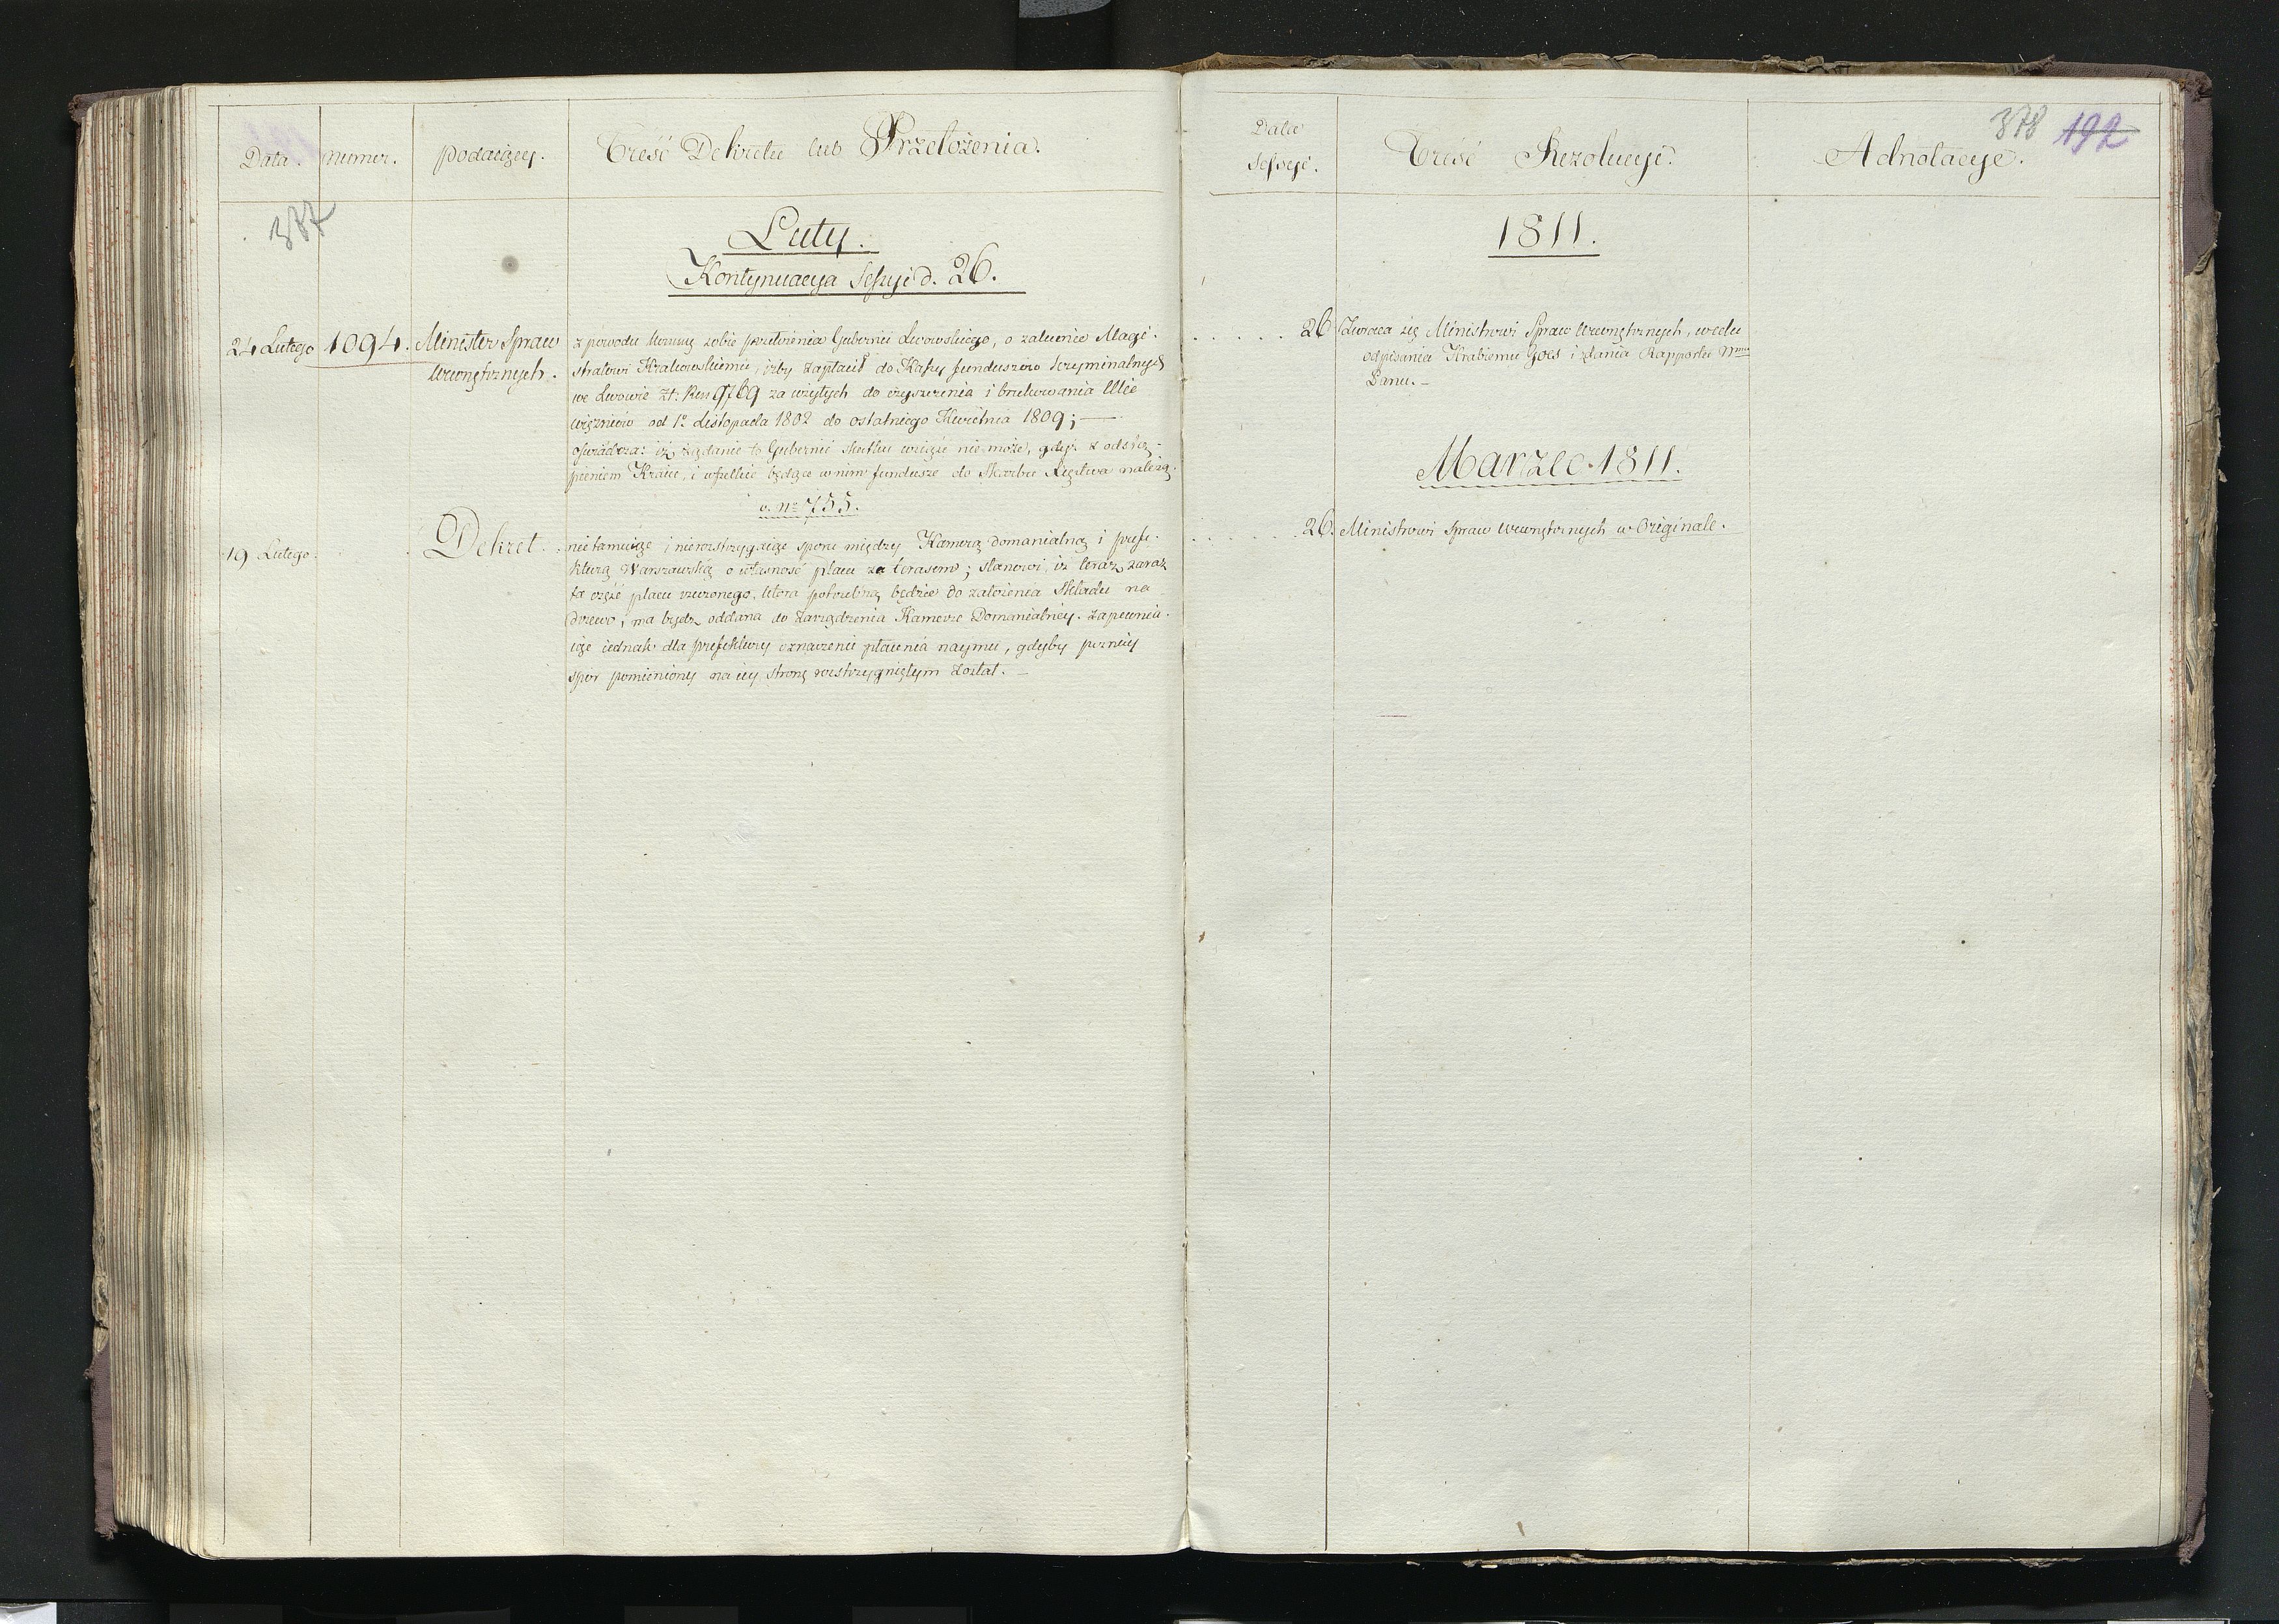 Data. numer. podaiący. Treść Dekretu lub Przełożenia.
377
Luty.
Kontynuacya Sessyi d. 26.
24 Lutego 1094. Minister Spraw
Wewnętrznych.
z powodu przełożenia Gubernii Lwowskiego, o zalecenie Magi-
stratowi Krakowskiemu, iżby zapłacił do Kassy funduszów kryminalnych
we Lwowie Zł: 9769 za użytych do czyszczenia i brukowania Ulic
więzniów od 1o Listopada 1802 do ostatniego Kwietnia 1809; —
oświadcza: iż żądanie to Gubernii skutku wziąść nie może, gdyż z odstą-
pieniem Kraiu, i wszelkie będące w nim fundusze do Skarbu Xięstwa należą.
v. No 755.
19 Lutego. Dekret.
nietamuiąc i nierozstrzygaiąc sporu między Kamerą domanialną i prefe-
kturą Warszawską o własność placu za terasem; stanowi, iż teraz zaraz
ta część placu rzeczonego, która potrzebną będzie do założenia Składu na
drzewo, ma bydź oddana do Zarządzenia Kamerze Domanialney. Zapewnia-
iąc iednak dla prefektury oznaczenie płacenia naymu, gdyby pozniey
spór pomieniony na iey stronę rozstrzygniętym został. —
Data
Sessyi.
Treść Rezolucyi.
Adnotacye.
378 192
1811.
26 Zwraca się Ministrowi Spraw Wewnętrznych, w celu
odpisania Hrabiemu Goes i zdania Rapportu Nmu
Panu. —
Marzec 1811.
26. Ministrowi Spraw Wewnętrznych w Originale.